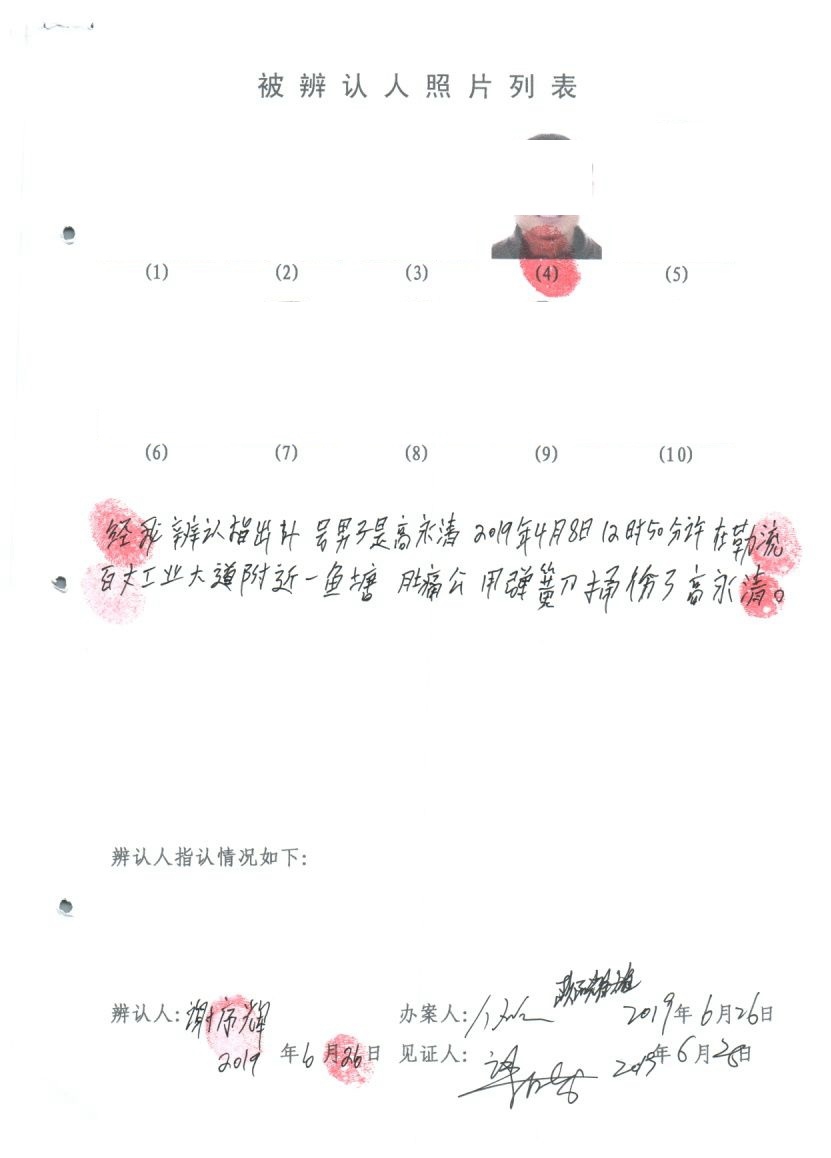 被辨认人照片列表
(1) (2) (3) (4) (5)
(6) (7) (8) (9) (10)
经我辨认指出4号男子是高永清 2019年4月8日12时50分许在勒流
百丈工业大道附近一鱼塘 肚痛公用弹簧刀捅伤了高永清。
辨认人指认情况如下:
辨认人: 办案人: 2019年6月26日
2019年6月26日 见证人: 2019年6月26日